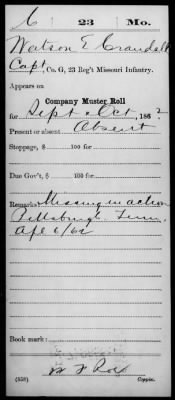 C 23 Mo.
Watson E Crandall
Capt, Co. G, 23 Reg't Missouri Infantry.
Appears on
Company Muster Roll
for Sept & Oct, 1862
Present or absent Absent
Stoppage, $ 100 for
Due Gov't, $ 100 for
Remarks: Missing in action
Pittsburgh Tenn,
Apl 6/62
Book mark:
(358) Copyist.